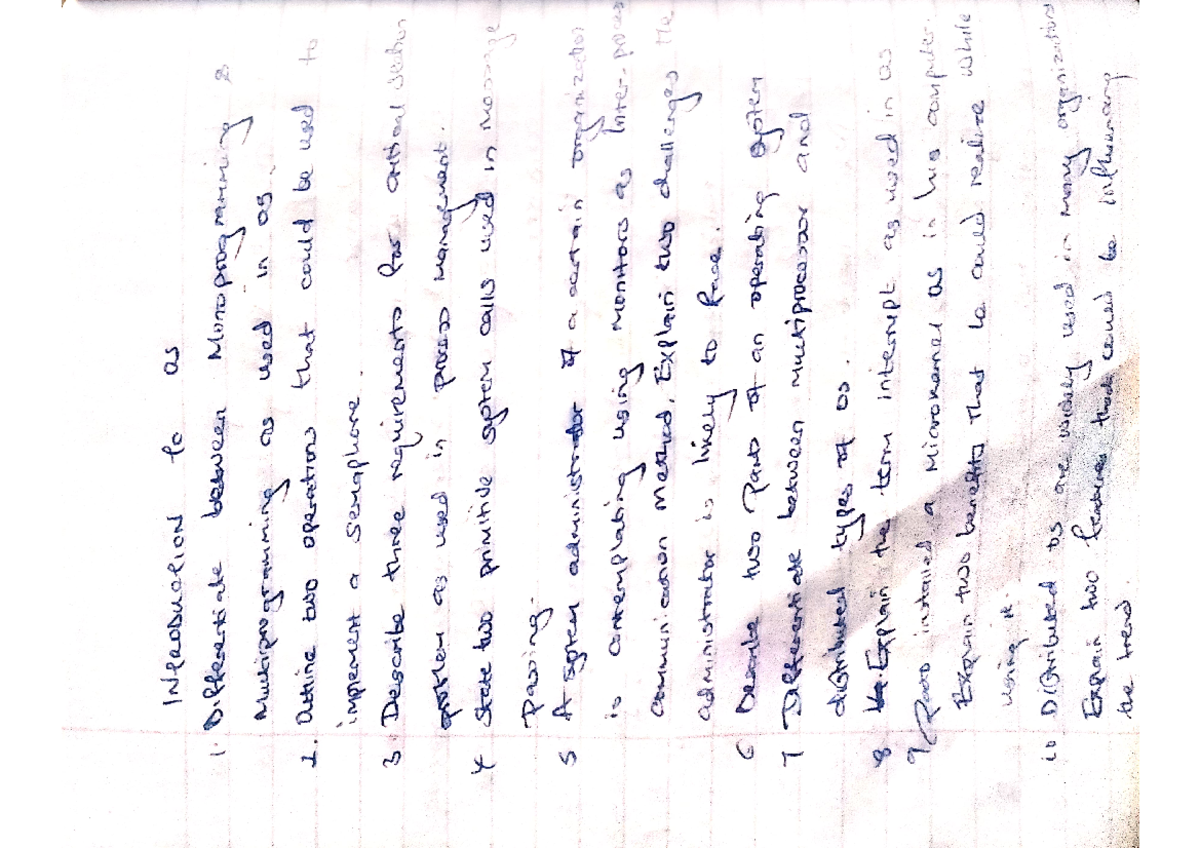 Introduction to os
1. Differentiate between Monoprogramming &
Multiprogramming as used in os.
2. Outline two operations that could be used to
impement a semaphore.
3 Describe three requirements for critical section
problem as used in process management.
4 State two primitive system calls used in message
Passing.
5 A system administrator of a certain organization
is contemplating using monitors as Inter-process
Communication Method. Explain two challenges the
administrator is likely to face.
6 Describe two Parts of an operating system
7 Differentiate between multiprocessor and
distributed types of os.
8 Explain the term interrupt as used in os
9 installed a Microkernel os in his computer.
Explain two benefits that he could realize while
using it.
10 Distributed os are widely used in many organizations
Explain two features that could be influencing
the trend.